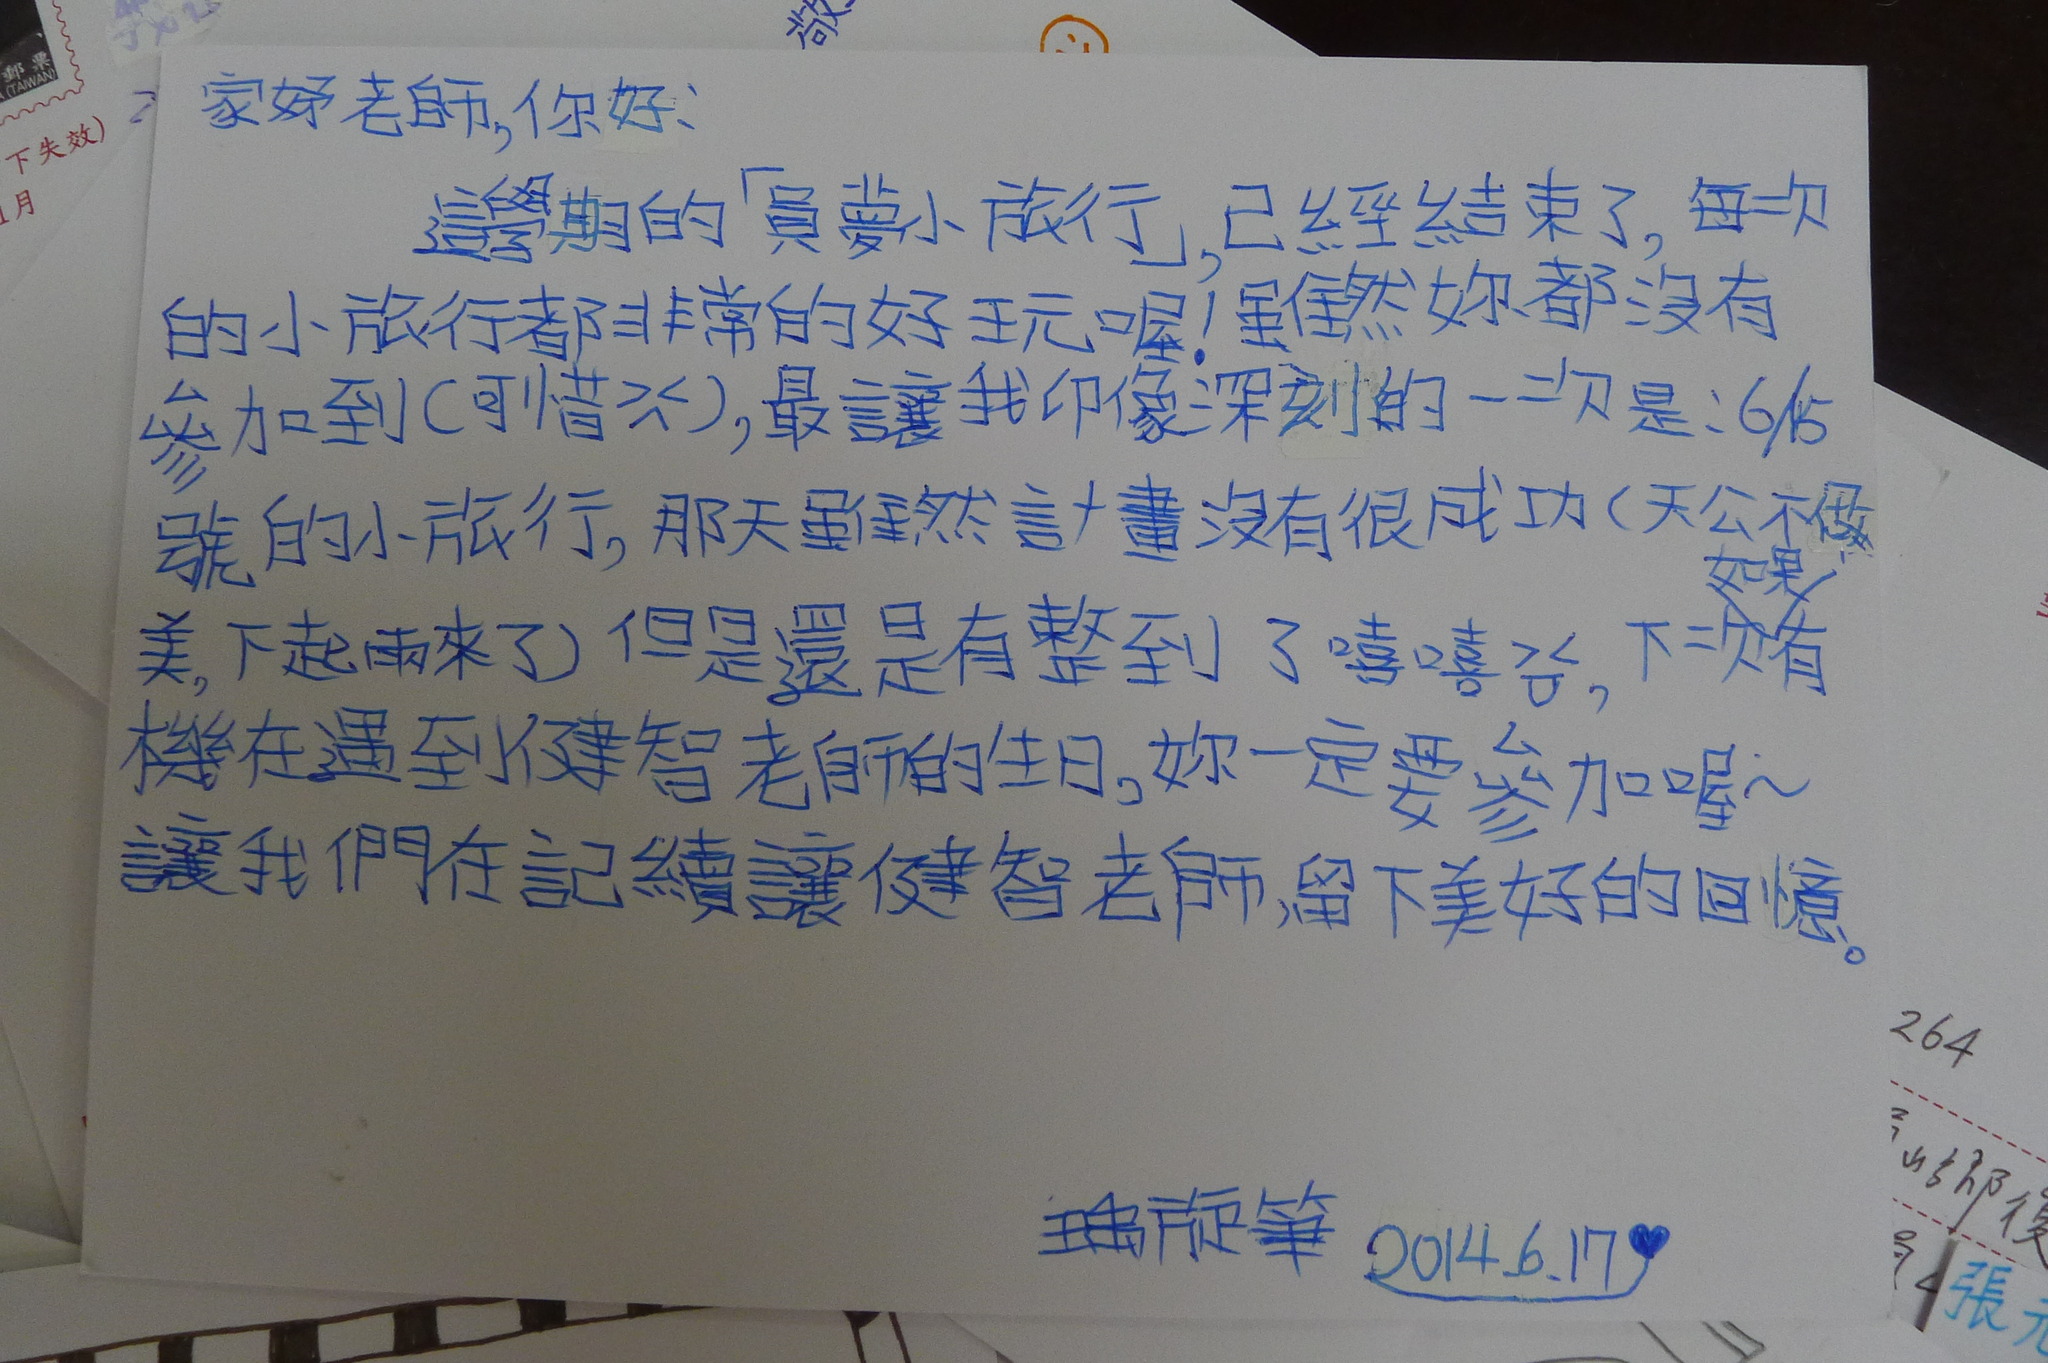 敬
郵票
(TAIWAN)
下失效)
1月
家妤老師,你好:
這學期的「員夢小旅行」,已經結束了,每次
的小旅行都非常的好玩喔!雖然妳都沒有
參加到(可惜><),最讓我印像深刻的一次是:6/15
號的小旅行,那天雖然計畫沒有很成功(天公不做
美,下起雨來了)但是還是有整到了嘻嘻><,下次如果有
機在遇到健智老師的生日,妳一定要參加喔~
讓我們在記續讓健智老師,留下美好的回憶。
旋筆 2014.6.17♥
264
張元